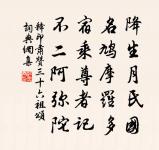 降生月民國
名鳩摩羅多
宿乘尊者記
不二阿弥陀
釋印肅贊三十六祖頌
詞典網集